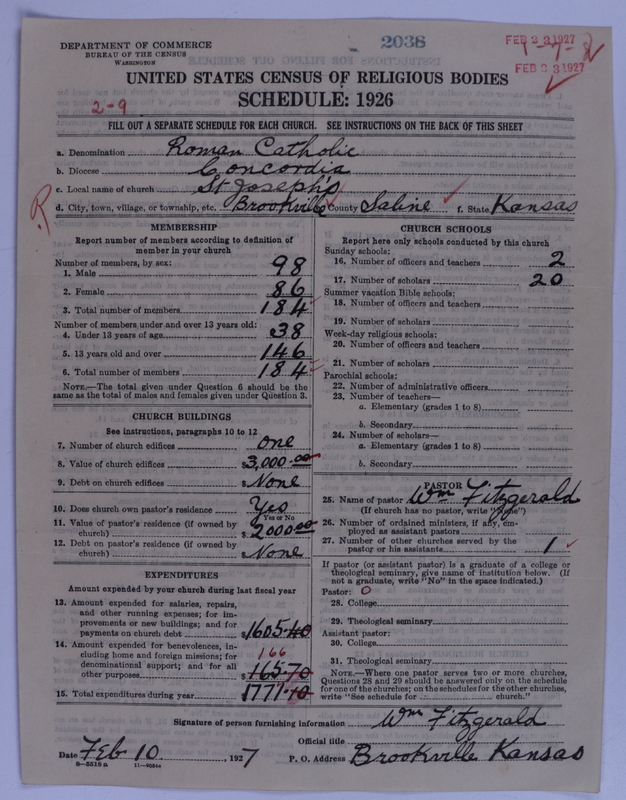 2038
FEB 23 1927
FEB 23 1927
DEPARTMENT OF COMMERCE
BUREAU OF THE CENSUS
WASHINGTON
UNITED STATES CENSUS OF RELIGIOUS BODIES
SCHEDULE: 1926
2-9
FILL OUT A SEPARATE SCHEDULE FOR EACH CHURCH. SEE INSTRUCTIONS ON THE BACK OF THIS SHEET
a. Denomination Roman Catholic
b. Diocese Concordia
c. Local name of church St Joseph's
d. City, town, village, or township, etc. Brookville County Saline f. State Kansas
MEMBERSHIP
Report number of members according to definition of
member in your church
Number of members, by sex:
1. Male 98
2. Female 86
3. Total number of members 184
Number of members under and over 13 years old:
4. Under 13 years of age 38
5. 13 years old and over 146
6. Total number of members 184
NOTE.—The total given under Question 6 should be
same as the total of males and females given under Question 3.
CHURCH BUILDINGS
See instructions, paragraphs 10 to 12
7. Number of church edifices one
8. Value of church edifices $3,000.00
9. Debt on church edifices $None
10. Does church own pastor's residence Yes
Yes or No
11. Value of pastor's residence (if owned by
church) $2000.00
12. Debt on pastor's residence (if owned by
church) $None
EXPENDITURES
Amount expended by your church during last fiscal year
13. Amount expended for salaries, repairs,
and other running expenses; for im-
provements or new buildings; and for
payments on church debt $1605.40
14. Amount expended for benevolences, in-
cluding home and foreign missions; for
denominational support; and for all
other purposes 166
$165.70
15. Total expenditures during year $1771.10
CHURCH SCHOOLS
Report here only schools conducted by this church
Sunday schools:
16. Number of officers and teachers 2
17. Number of scholars 20
Summer vacation Bible schools:
18. Number of officers and teachers
19. Number of scholars
Week-day religious schools:
20. Number of officers and teachers
21. Number of scholars
Parochial schools:
22. Number of administrative officers
23. Number of teachers—
a. Elementary (grades 1 to 8)
b. Secondary
24. Number of scholars—
a. Elementary (grades 1 to 8)
b. Secondary
PASTOR
25. Name of pastor Wm Fitzgerald
(If church has no pastor, write "None")
26. Number of ordained ministers, if any, em-
ployed as assistant pastors
27. Number of other churches served by the
pastor or his assistants 1
If pastor (or assistant pastor) is a graduate of a college or
theological seminary, give name of institution below. (If
not a graduate, write "No" in the space indicated.)
Pastor: 0
28. College
29. Theological seminary
Assistant pastor:
30. College
31. Theological seminary
NOTE.—Where one pastor serves two or more churches,
Questions 28 and 29 should be answered only on the schedule
for one of the churches; on the schedules for the other churches,
write "See schedule for church."
Signature of person furnishing information Wm Fitzgerald
Official title
Date Feb 10, 1927 P. O. Address Brookville Kansas
8-5518 a 11-9056a